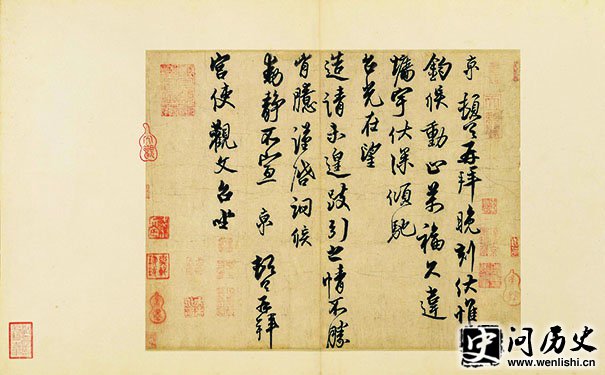 京 頓首再拜晚刻伏惟
鈞候動止萬福久違
墻宇伏深傾馳
台光在望
造請未遑跂引之情不勝
胷臆謹啓詞候
動靜不宣 京 頓首再拜
宮使觀文台坐
问历史
www.wenlishi.cn